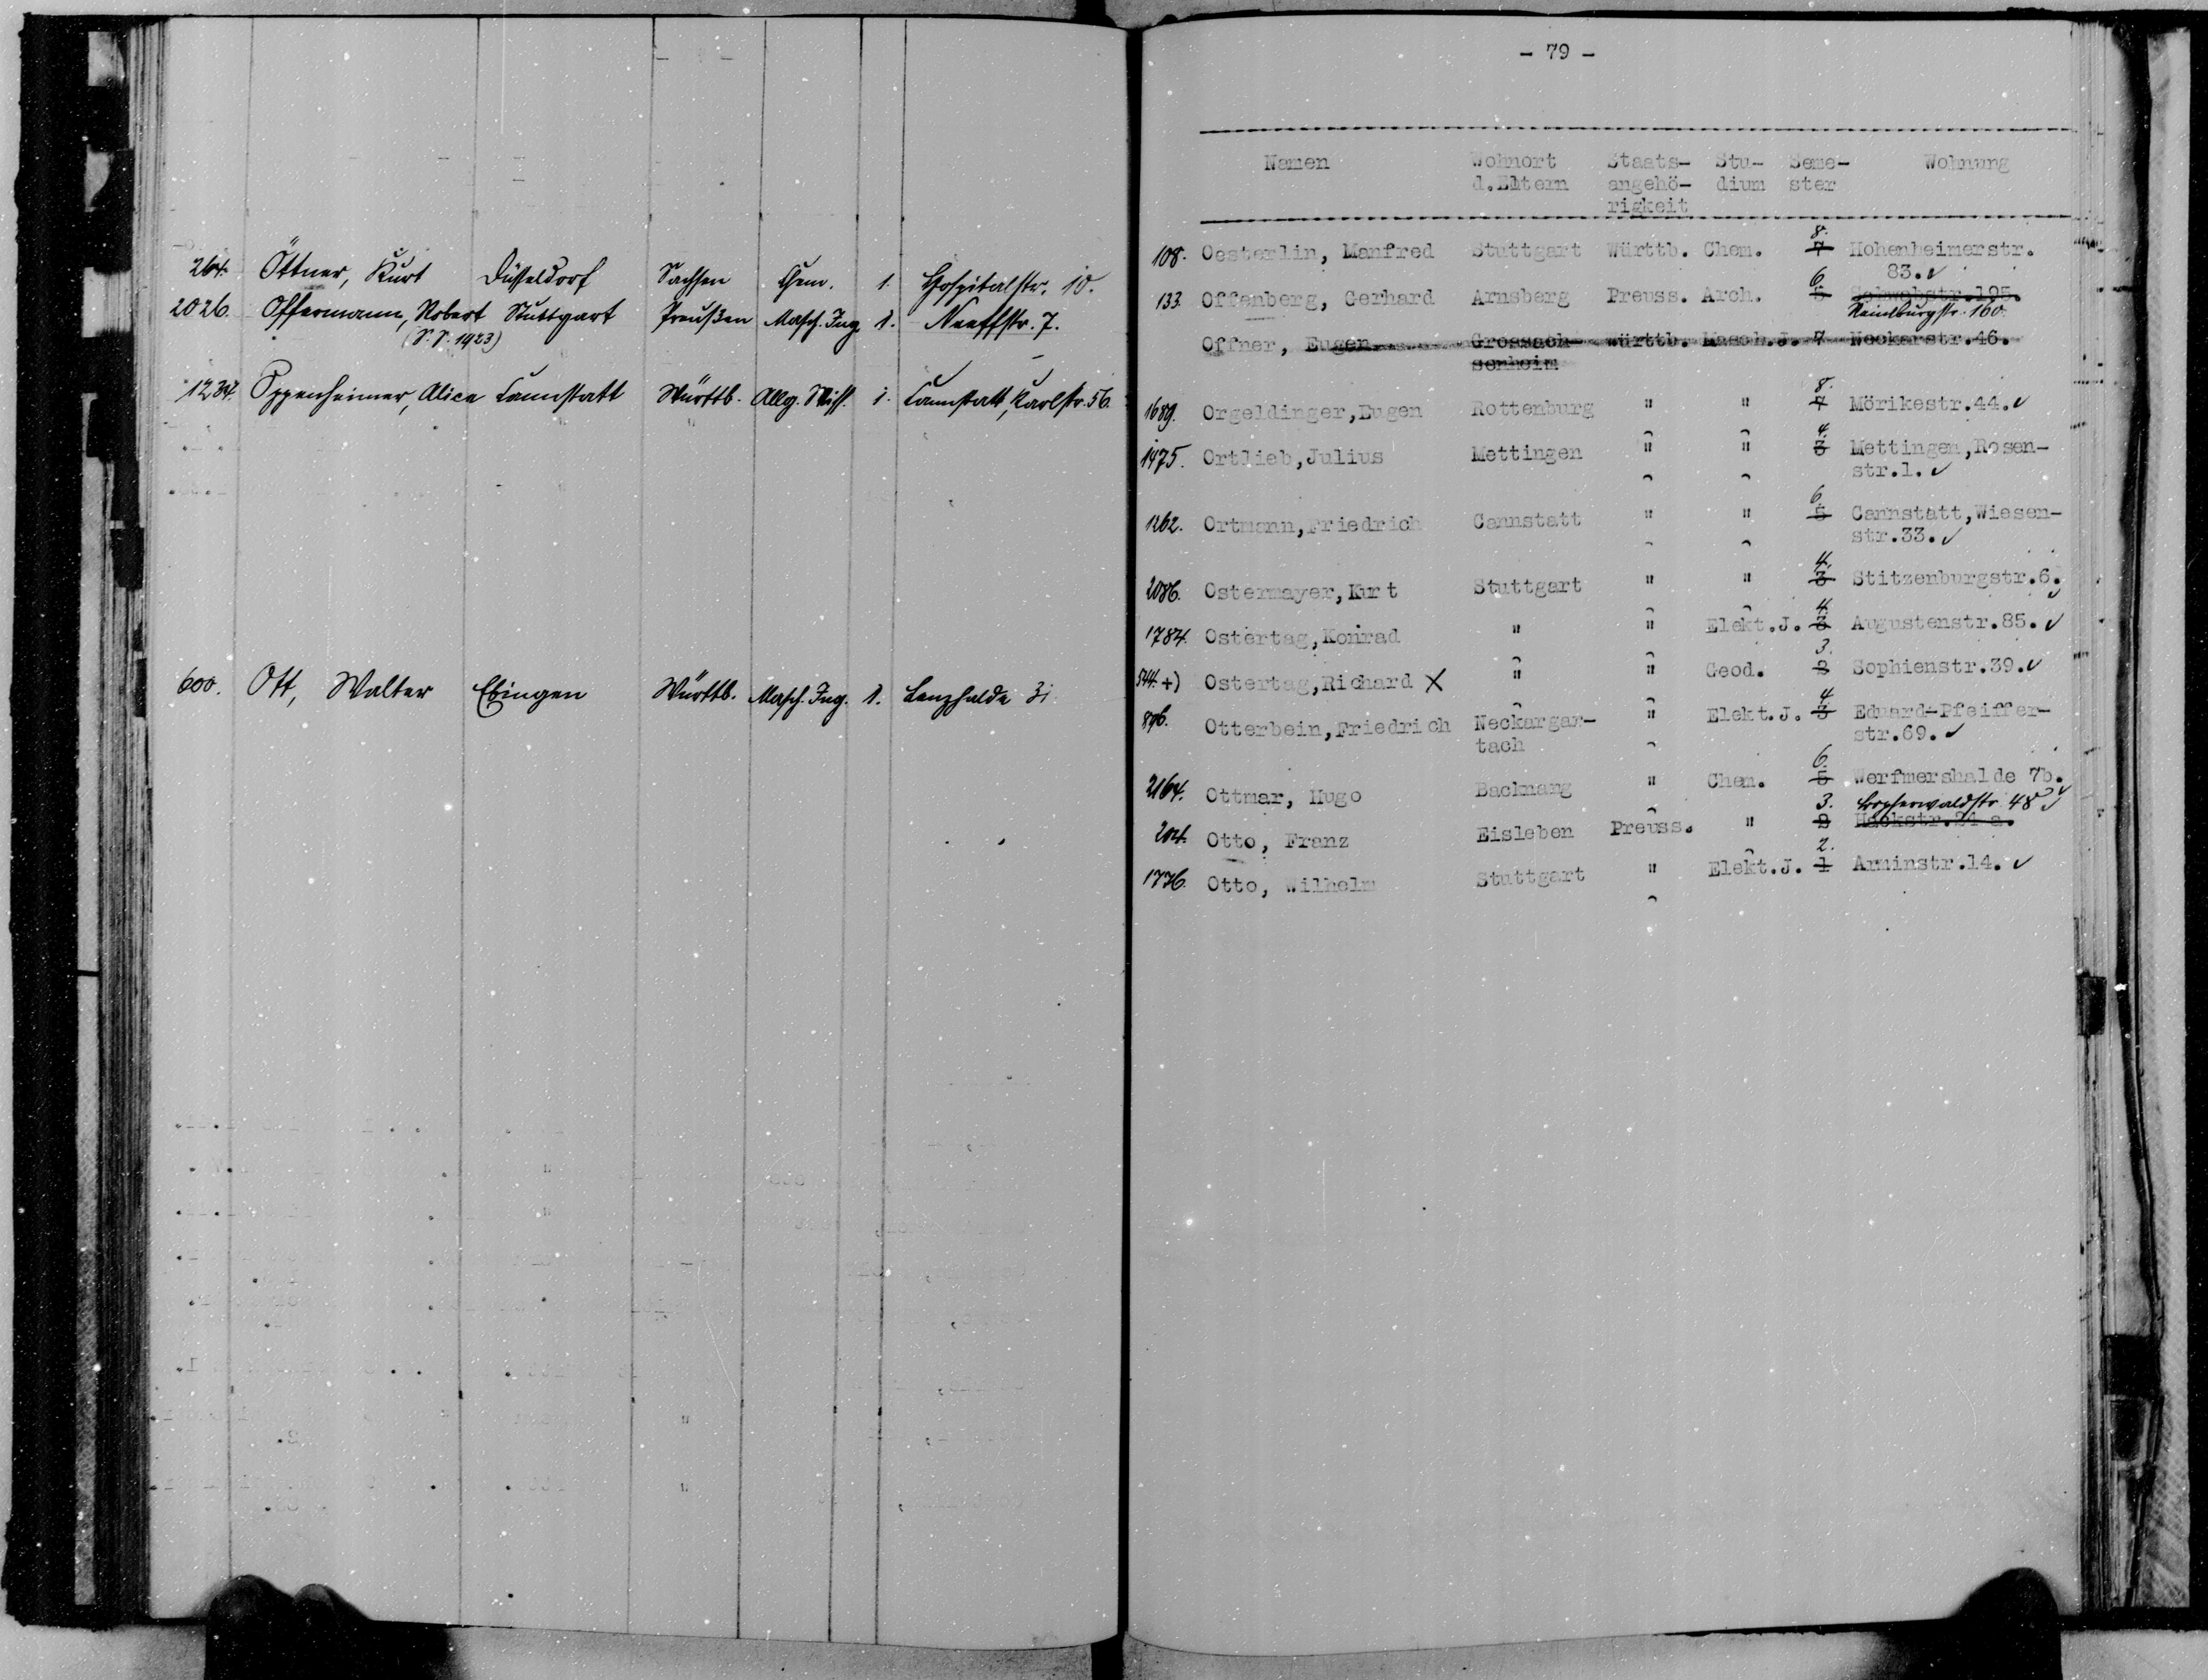 264. Öttner, Kurt Düsseldorf Sachsen Chem. 1. Hospitalstr. 10.
2026. Offermann, Robert Stuttgart Preußen Masch. Ing. 1. Neeffstr. 7.
(S.S. 1923)
1234. Oppenheimer, Alice Cannstatt Württb. Allg. Wiss. 1. Cannstatt, Karlstr. 56.
600. Ott, Walter Ebingen Württb. Masch. Ing. 1. Lenzhalde 31
- 79 -
Namen Wohnort Staats- Stu- Seme- Wohnung
d.Eltern angehö- dium ster
rigkeit
8.
108. Oesterlin, Manfred Stuttgart Württb. Chem. 7 Hohenheimerstr.
6. 83.
133. Offenberg, Gerhard Arnsberg Preuss. Arch. 5 Schwabstr.195.
Reinsburgstr. 160.
Offner, Eugen Grossach- Württb. Masch.J. 7 Neckarstr.46.
senheim
8.
1689. Orgeldinger,Eugen Rottenburg " " 7 Mörikestr.44.
4.
1475. Ortlieb,Julius Mettingen " " 3 Mettingen,Rosen-
str.1.
6.
1262. Ortmann,Friedrich Cannstatt " " 5 Cannstatt,Wiesen-
str.33.
4.
2086. Ostermayer,Kurt Stuttgart " " 3 Stitzenburgstr.6.
4.
1784. Ostertag,Konrad " " Elekt.J. 3 Augustenstr.85.
3.
544. +) Ostertag,Richard X " " Geod. 2 Sophienstr.39.
4
896. Otterbein,Friedrich Neckargar- " Elekt.J. 3 Eduard-Pfeiffer-
tach str.69.
6.
2164. Ottmar, Hugo Backnang " Chem. 5 Werfmershalde 7b.
3. 48
204. Otto, Franz Eisleben Preuss. " 2 Hackstr.24 a.
2.
1776. Otto, Wilhelm Stuttgart " Elekt.J. 1 Arminstr.14.